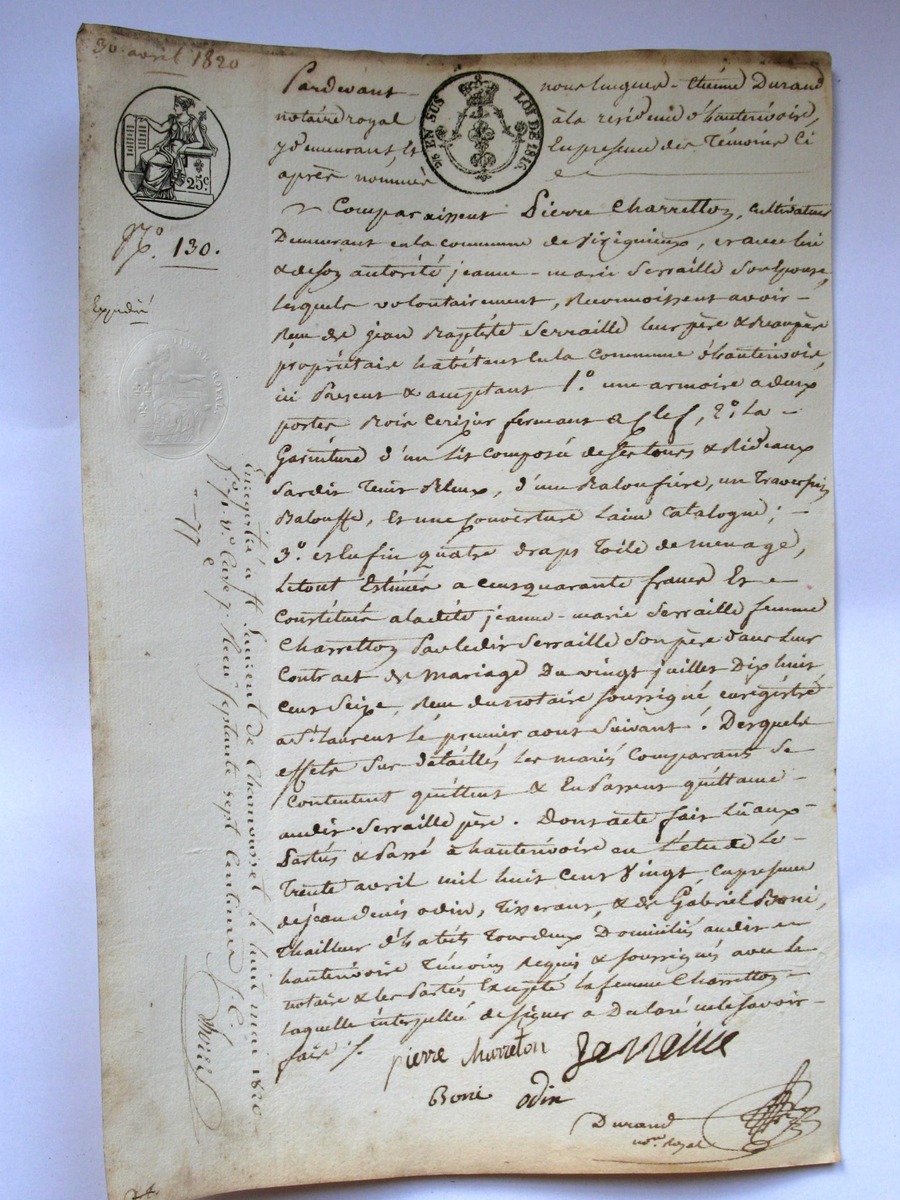 30. avril 1820
Pardevant nous hugues-Etienne Durand
notaire royal à la residence d'hauterivoire,
y demeurant, Et En presence des Témoins Ci
après nommés
2/10 EN SUS LOI DE 1816.
25c
No. 130.
Expedié
Comparaissent Pierre Charretton, Cultivateur
Demeurant en la commune de, et avec lui
& de son autorité jeanne-marie Serraille Son Epouse,
lesquels volontairement, Reconnoissent avoir
Recu de jean Baptiste Serraille leur père & Beaupère
propriétaire habitant En la Commune d'hauterivoire,
ici Present & acceptant 1.° une armoire a deux
portes Bois Cerisier fermant a Clef, 2.° La
Garniture d'un Lit Composé de Ses tours & Rideaux
Sardis Teint Bleux, d'une Balouffière, un Traversin
Balouffe, Et une Couverture Laine Catalogne;
3.° et Enfin quatre draps Toile de menage,
Letout Estimés a Cent quarante francs Et
Constitués aladite jeanne-marie Serraille femme
Charretton Par ledit Serraille Son père dans Leur
Contract de mariage Du vingt juillet Dix huit
Cent Seize, Recu du notaire soussigné enregistré
a St. Laurent le premier aout Suivant. Desquels
effets Sus détaillés les mariés Comparants Se
Contentent quittent & En Passent quittance
audit Serraille père. Dont acte fait Lu aux
Parties & Passé à hauterivoire en L'etude Le
Trente avril mil huit Cent Vingt En presence
de jean denis odin, Tisserant, & de Gabriel Boni,
Thailleur d'habits Tous deux Domiciliés audit
hauterivoire Témoins Requis & soussignés avec le
notaire & les Parties Excepté la femme Charretton
laquelle interpellée de signer a Declaré ne le Savoir
faire
pierre charreton Serraille
Boni odin
Durand
nore. royal
Enregistré à St Laurent de Chamousset le huit mai 1820
f.° 71 v.° Case 7 Recu Septante sept Centimes